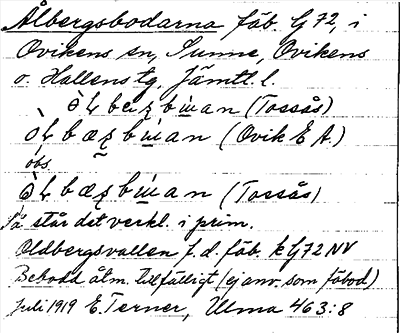 Ålbergsbodarna fäb. G 72, i
Ovikens sn, Sunne, Ovikens
o. Hallens tg, Jämtl. l.
(Tossås)
(Ovik E A.)
obs
(Tossås)
Så står det verkl. i prim.
Oldbergsvallen f.d. fäb. k G 72 NV
Bebodd åtm. tillfälligt (ej anv. som fäbod)
Juli 1919 E. Terner, Ulma 463:8